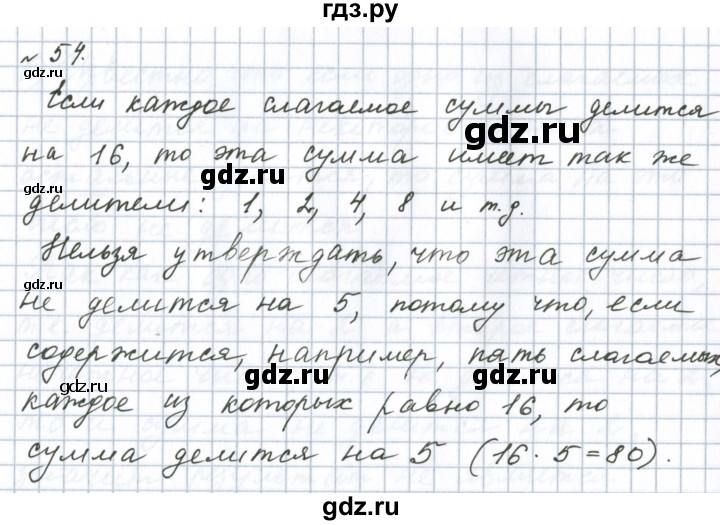 гдз.ру
№ 54.
gdz.ru
gdz.ru
Если каждое слагаемое суммы делится
gdz.ru
на 16, то эта сумма имеет так же
gdz.ru
gdz.ru
делители: 1, 2, 4, 8 и т.д.
Нельзя утверждать, что эта сумма
gdz.ru
gdz.ru
не делится на 5, потому что, если
содержится, например, пять слагаемых,
gdz.ru
gdz.ru
каждое из которых равно 16, то
сумма делится на 5 (16 · 5 = 80).
gdz.ru
gdz.ru
gdz.ru